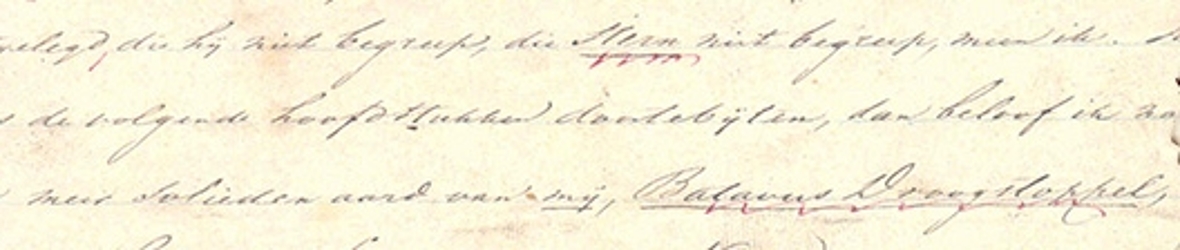 gelegd, die hij niet begreep, die Stern niet begreep, meen ik.
de volgende hoofdstukken doortebijten, dan beloof ik
meer solieden aard van mij, Batavus Droogstoppel,